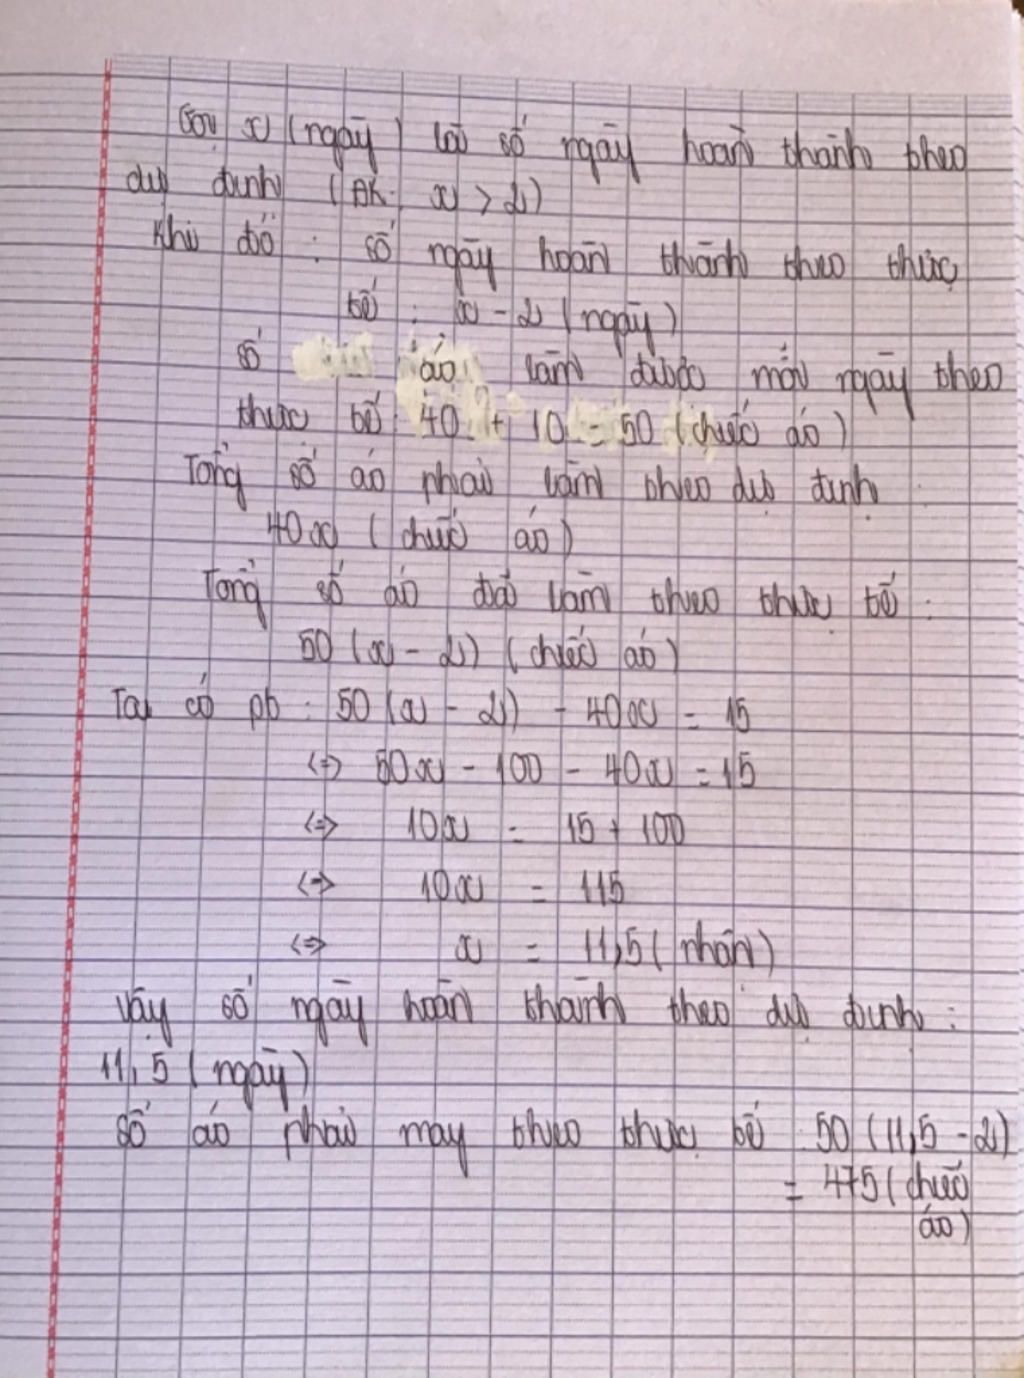 Gọi x (ngày) là số ngày hoàn thành theo
dự định (ĐK: x > 2)
Khi đó : số ngày hoàn thành theo thực
tế : x - 2 (ngày)
Số áo làm được mỗi ngày theo
thực tế : 40 + 10 = 50 (chiếc áo)
Tổng số áo phải làm theo dự định :
40x (chiếc áo)
Tổng số áo đã làm theo thực tế :
50 (x - 2) (chiếc áo)
Ta có pt : 50 (x - 2) - 40x = 15
<=> 50x - 100 - 40x = 15
<=> 10x = 15 + 100
<=> 10x = 115
<=> x = 11,5 (nhận)
Vậy số ngày hoàn thành theo dự định :
11,5 (ngày)
Số áo phải may theo thực tế : 50 (11,5 - 2)
= 475 (chiếc
áo)